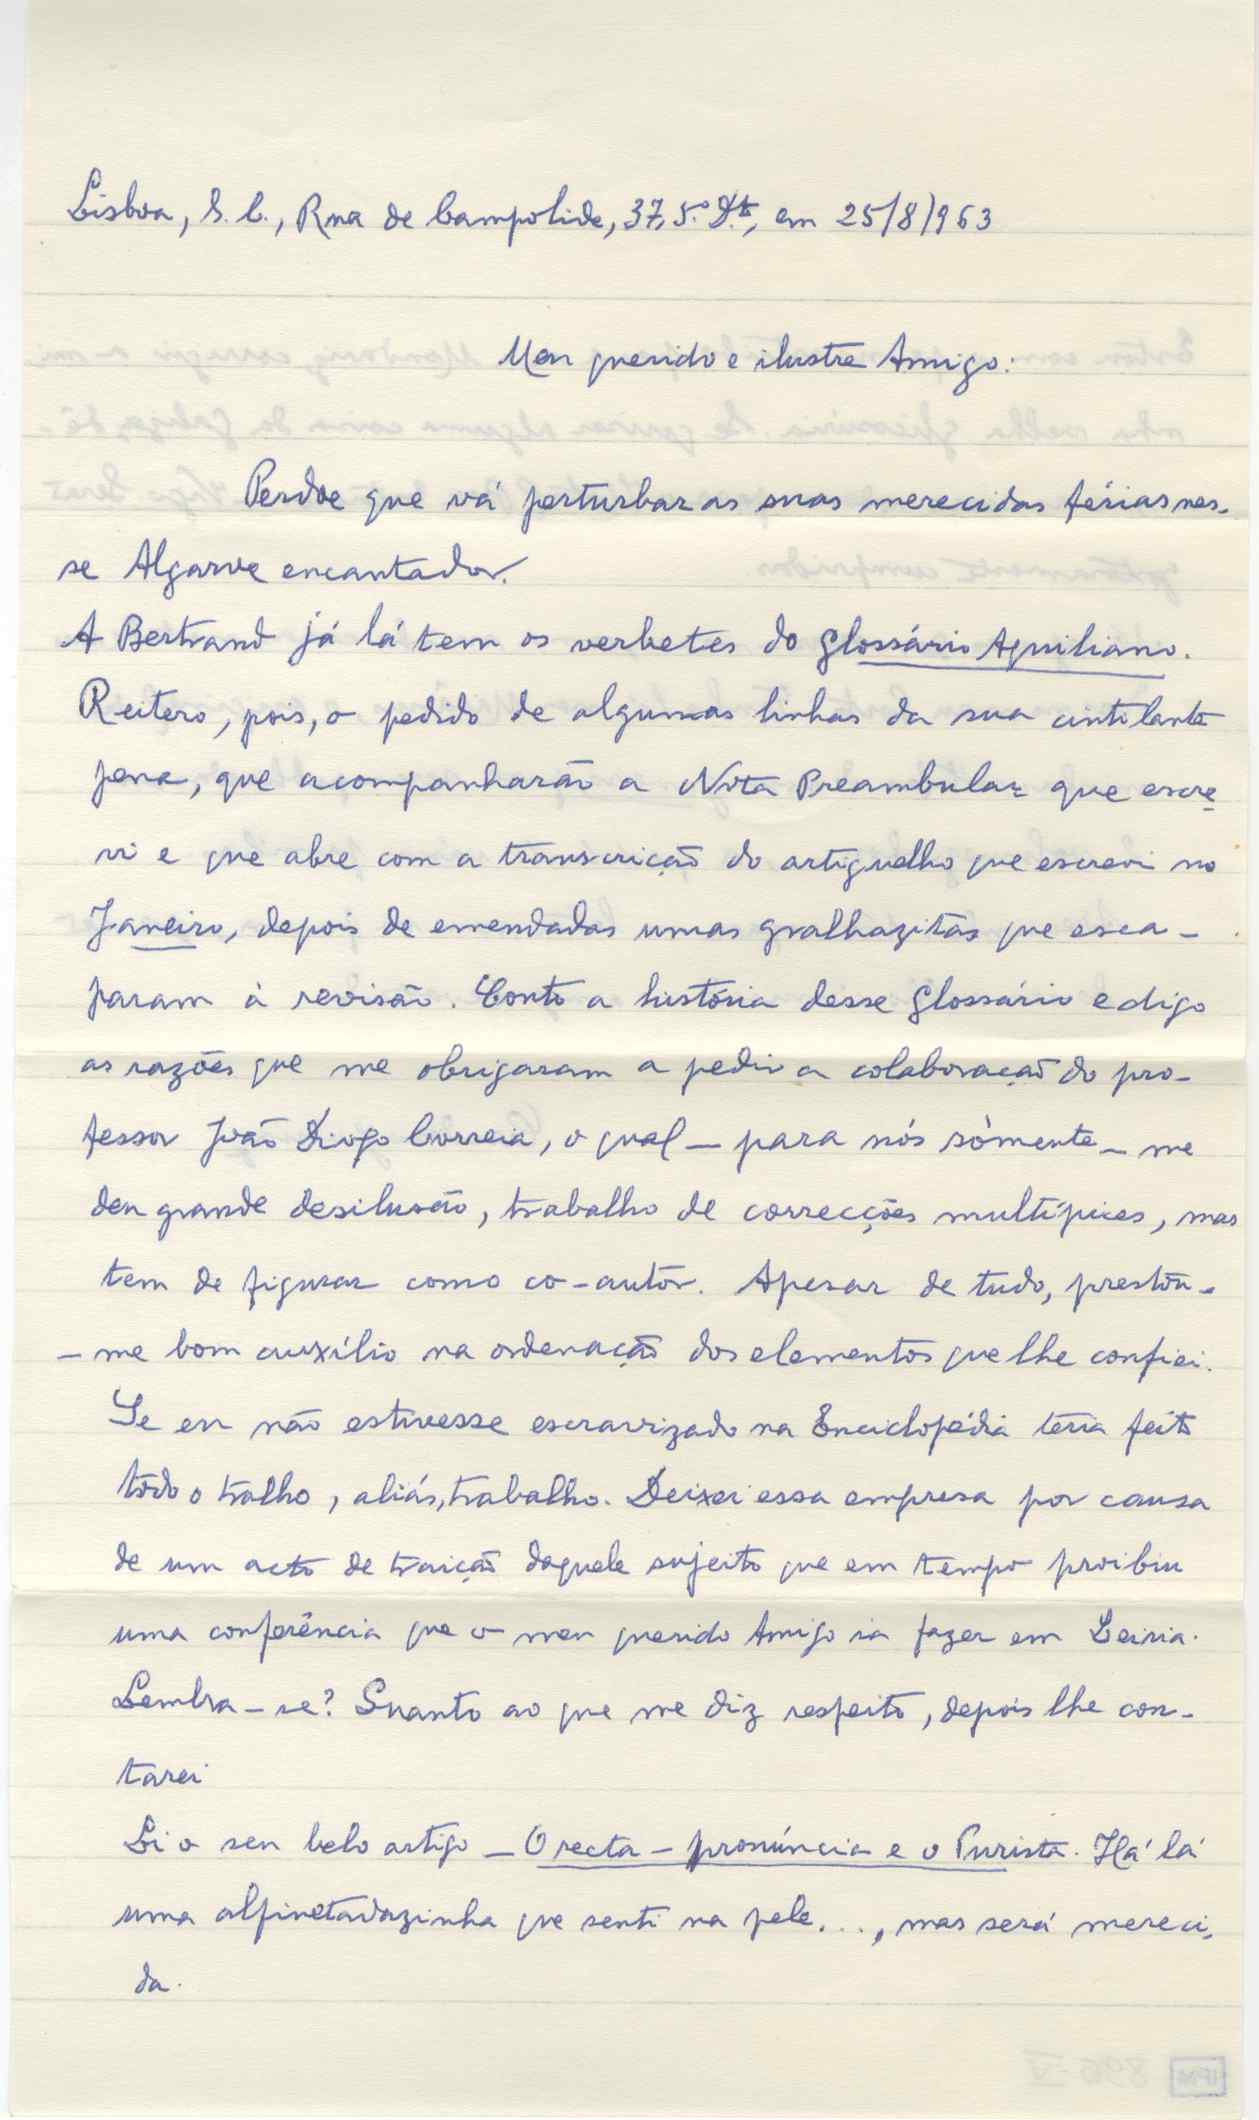 Lisboa, S. C., Rua de Campolide, 37, 5.º D.to, em 25/8/963
Meu querido e ilustre Amigo:
Perdoe que vá perturbar as suas merecidas férias nes-
se Algarve encantador.
A Bertrand já lá tem os verbetes do Glossário Aquiliano.
Reitero, pois, o pedido de algumas linhas da sua cintilante
pena, que acompanharão a Nota Preambular que escre-
vi e que abre com a transcrição do artiguelho que escrevi no
Janeiro, depois de emendadas umas gralhazitas que esca-
param à revisão. Conto a história desse Glossário e digo
as razões que me obrigaram a pedir a colaboração do pro-
fessor João Diogo Correia, o qual — para nós sòmente — me
deu grande desilusão, trabalho de correcções multíplices, mas
tem de figurar como co-autor. Apesar de tudo, prestou-
-me bom auxílio na ordenação dos elementos que lhe confiei.
Se eu não estivesse escravizado na Enciclopédia teria feito
todo o tralho, aliás, trabalho. Deixei essa empresa por causa
de um acto de traição daquele sujeito que em tempo proibiu
uma conferência que o meu querido Amigo ia fazer em Leiria.
Lembra-se? Quanto ao que me diz respeito, depois lhe con-
tarei
Li o seu belo artigo — O recta-pronúncia e o Purista. Há lá
uma alfinetadazinha que senti na pele..., mas será mereci-
da.
896-IV